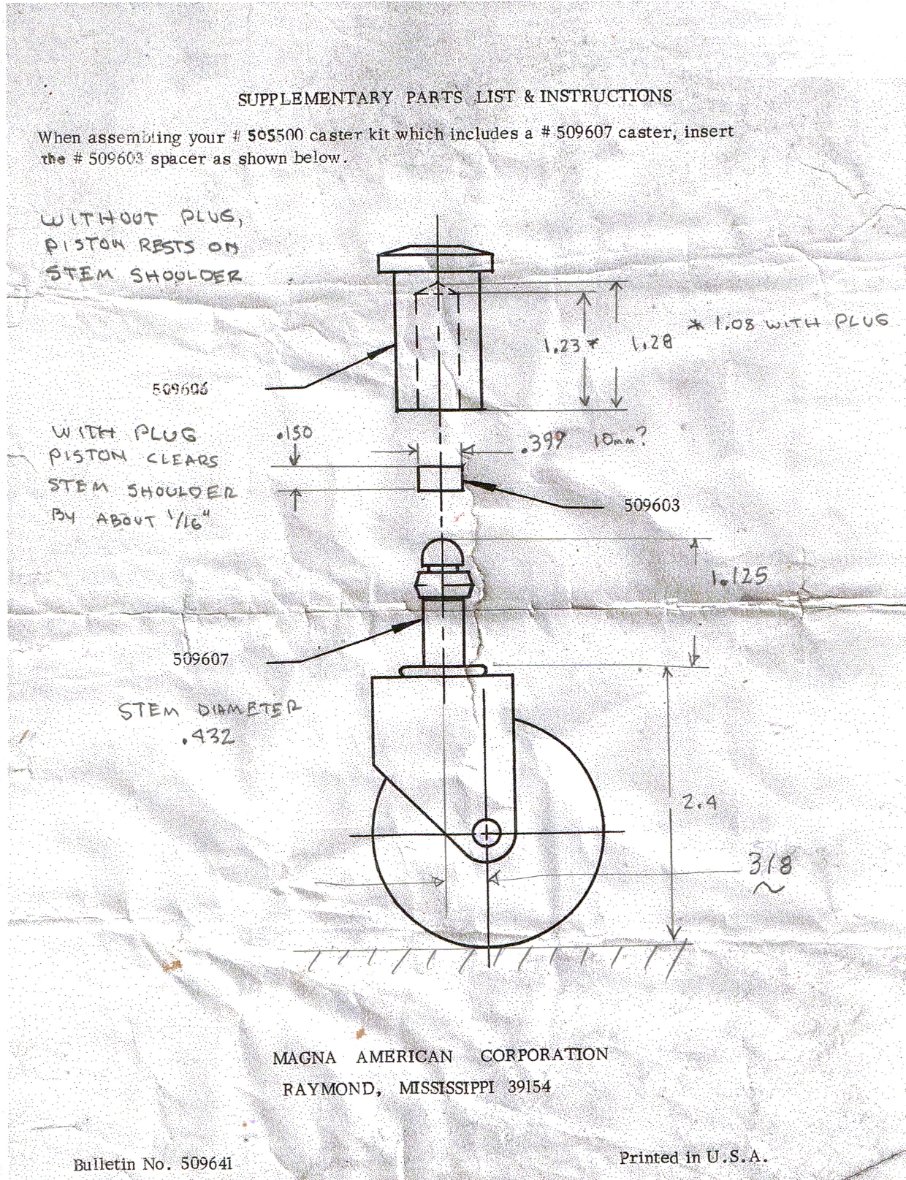 SUPPLEMENTARY PARTS LIST & INSTRUCTIONS
When assembling your # 505500 caster kit which includes a # 509607 caster, insert
the # 509603 spacer as shown below.
WITHOUT PLUG,
PISTON RESTS ON
STEM SHOULDER
1.23 *
1.28
* 1.08 WITH PLUG
509606
WITH PLUG
PISTON CLEARS
STEM SHOULDER
BY ABOUT 1/16"
.150
.399 10mm?
509603
1.125
509607
STEM DIAMETER
.432
2.4
3/8
~
MAGNA AMERICAN CORPORATION
RAYMOND, MISSISSIPPI 39154
Bulletin No. 509641
Printed in U.S.A.